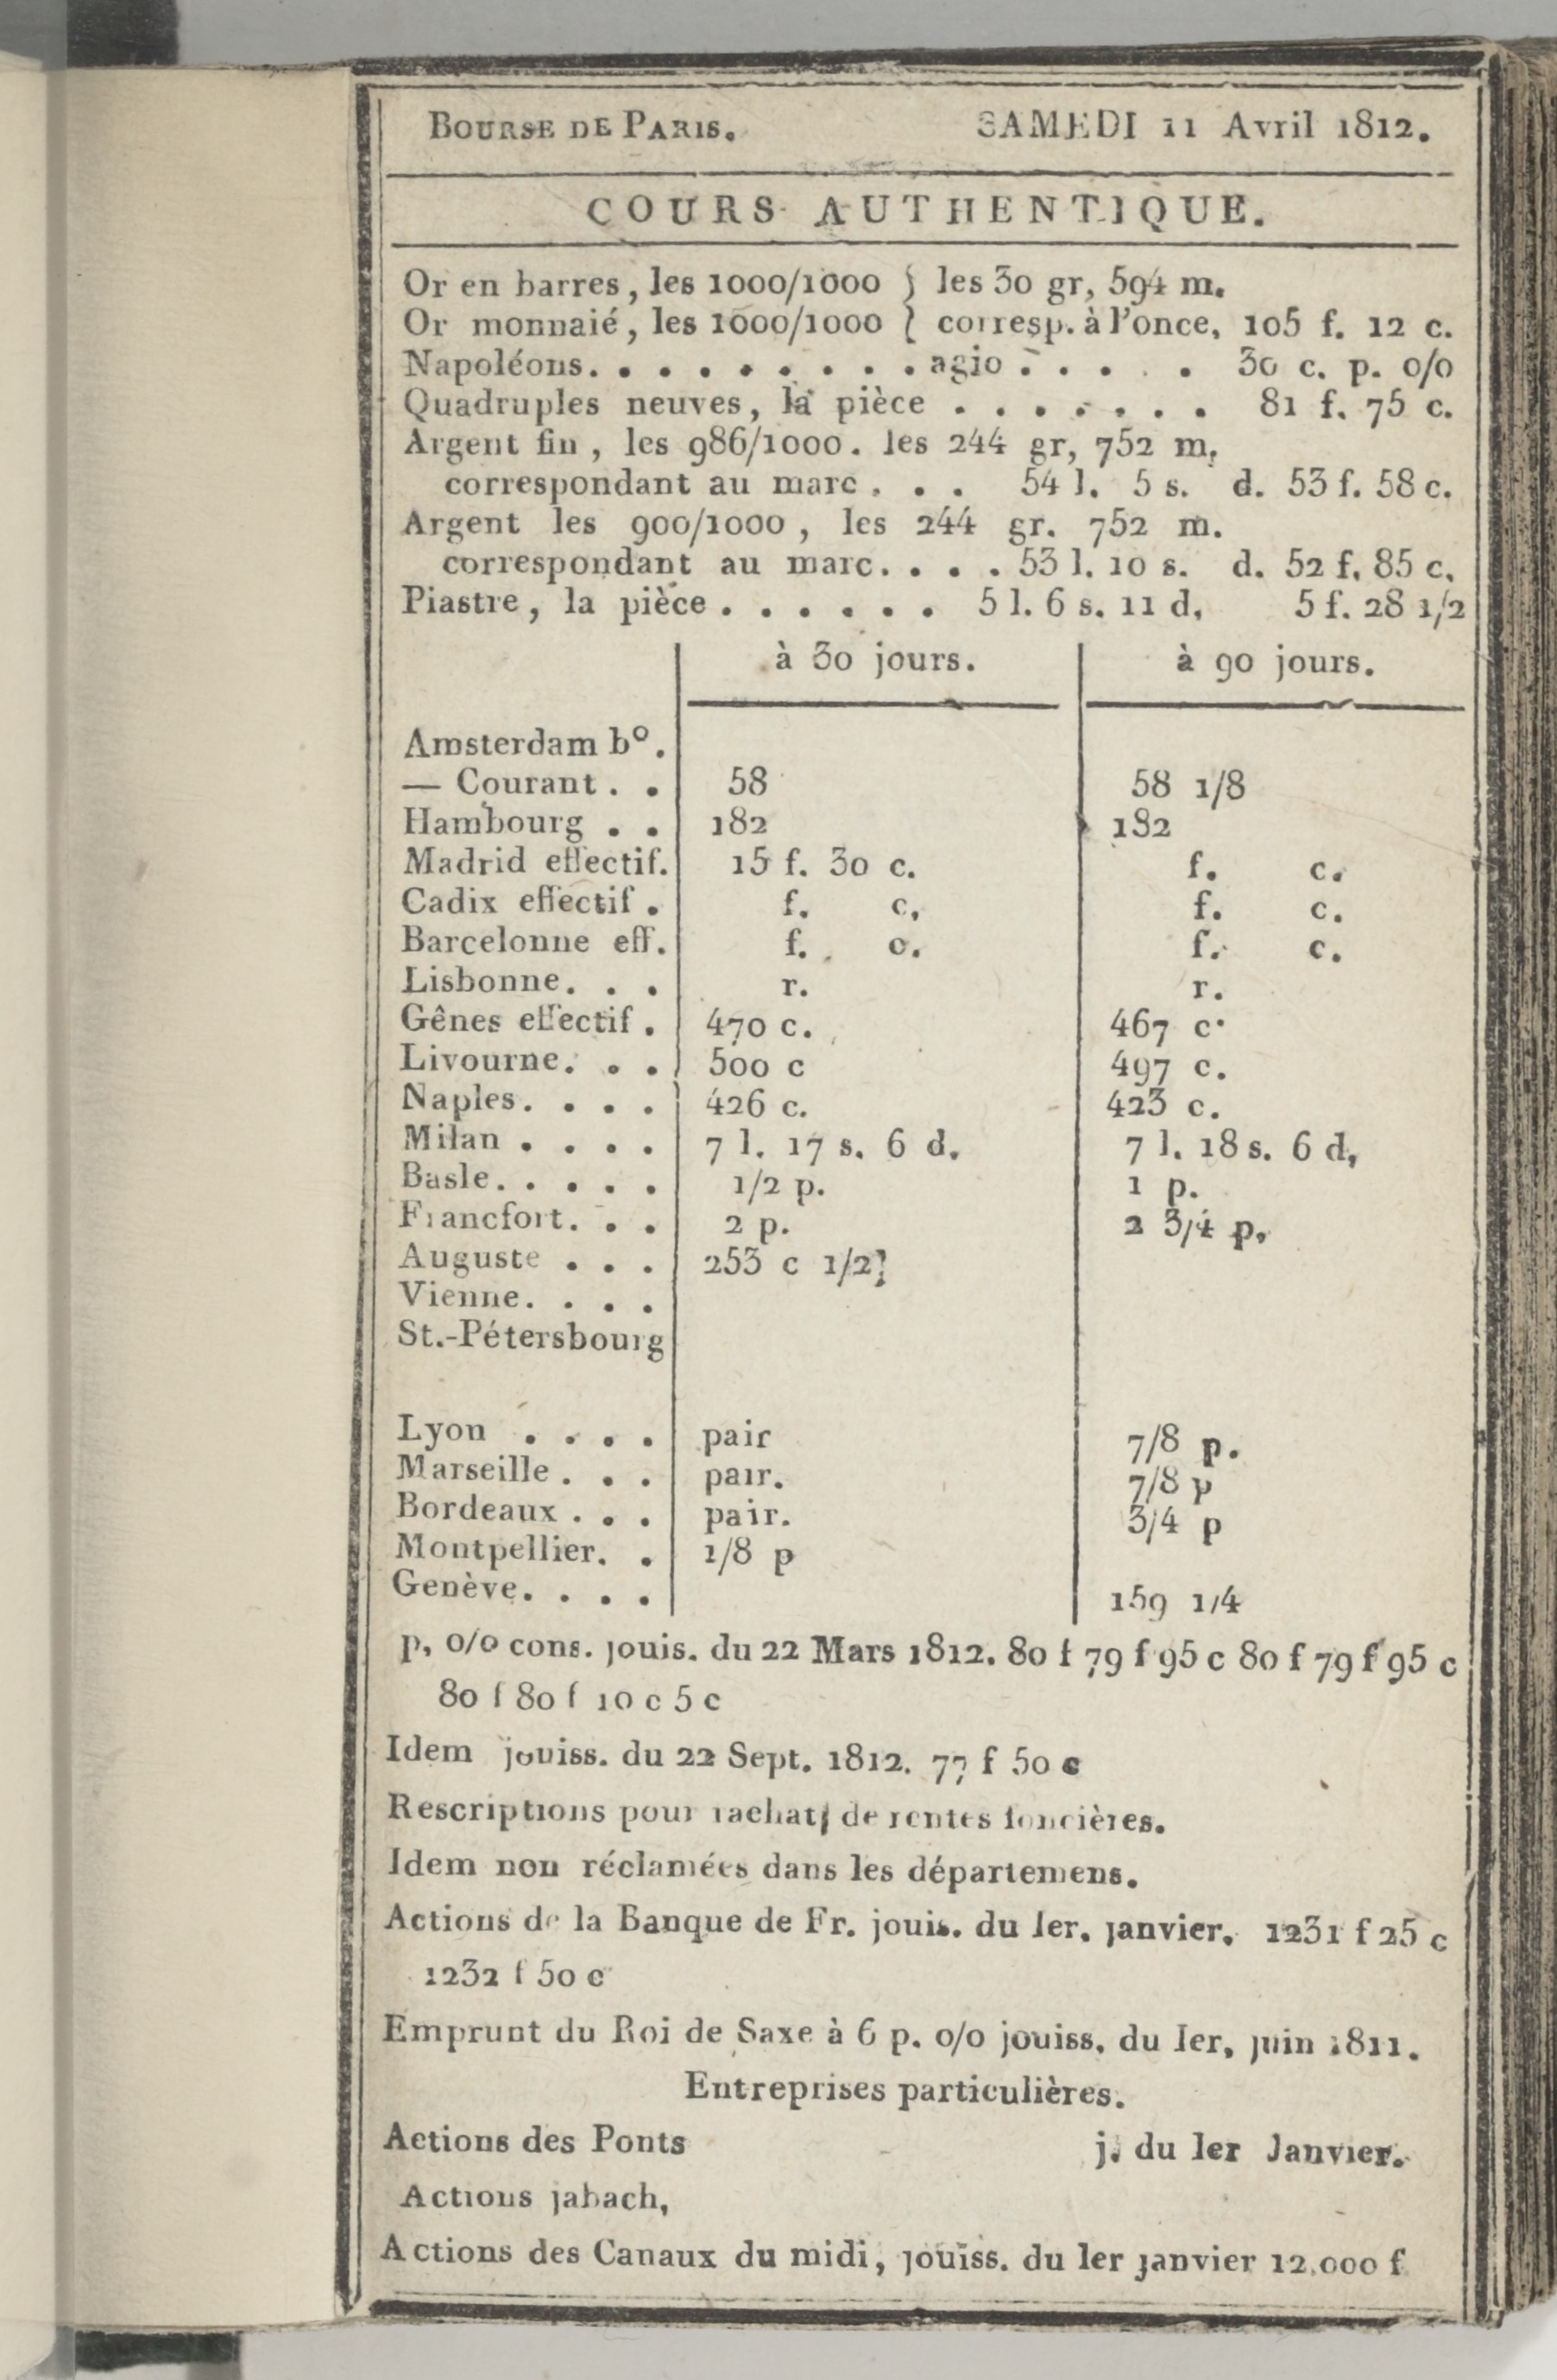 BOURSE DE PARIS. SAMEDI 11 Avril 1812.
COURS AUTHENTIQUE.
Or en barres, les 1000/1000 } les 30 gr, 594 m.
Or monnaié, les 1000/1000 { corresp. à l'once, 105 f. 12 c.
Napoléons. . . . . . . . . agio . . . . . 30 c. p. 0/0
Quadruples neuves, la pièce . . . . . . . 81 f. 75 c.
Argent fin, les 986/1000. les 244 gr, 752 m,
correspondant au marc . . . 54 l. 5 s. d. 53 f. 58 c.
Argent les 900/1000, les 244 gr. 752 m.
correspondant au marc. . . . 53 l. 10 s. d. 52 f, 85 c,
Piastre, la pièce . . . . . . 5 l. 6 s. 11 d, 5 f. 28 1/2
à 30 jours. à 90 jours.
Amsterdam b°.
— Courant . . 58 58 1/8
Hambourg . . 182 182
Madrid effectif. 15 f. 30 c. f. c.
Cadix effectif . f. c, f. c.
Barcelonne eff. f. c. f. c.
Lisbonne. . . r. r.
Gênes effectif . 470 c. 467 c.
Livourne. . . 500 c 497 c.
Naples. . . . 426 c. 423 c.
Milan . . . . 7 l. 17 s. 6 d. 7 l. 18 s. 6 d,
Basle. . . . . 1/2 p. 1 p.
Francfort. . . 2 p. 2 3/4 p,
Auguste . . . 253 c 1/2
Vienne. . . .
St.-Pétersbourg
Lyon . . . . pair 7/8 p.
Marseille . . . pair. 7/8 p
Bordeaux . . . pair. 3/4 p
Montpellier. . 1/8 p
Genève. . . . 159 1/4
p, 0/0 cons. jouis. du 22 Mars 1812. 80 f 79 f 95 c 80 f 79 f 95 c
80 f 80 f 10 c 5 c
Idem jouiss. du 22 Sept. 1812. 77 f 50 c
Rescriptions pour rachat de rentes foncières.
Idem non réclamées dans les départemens.
Actions de la Banque de Fr. jouis. du 1er. janvier. 1231 f 25 c
1232 f 50 c
Emprunt du Roi de Saxe à 6 p. 0/0 jouiss. du 1er, juin 1811.
Entreprises particulières.
Actions des Ponts j. du 1er Janvier.
Actions jabach,
Actions des Canaux du midi, jouiss. du 1er janvier 12,000 f